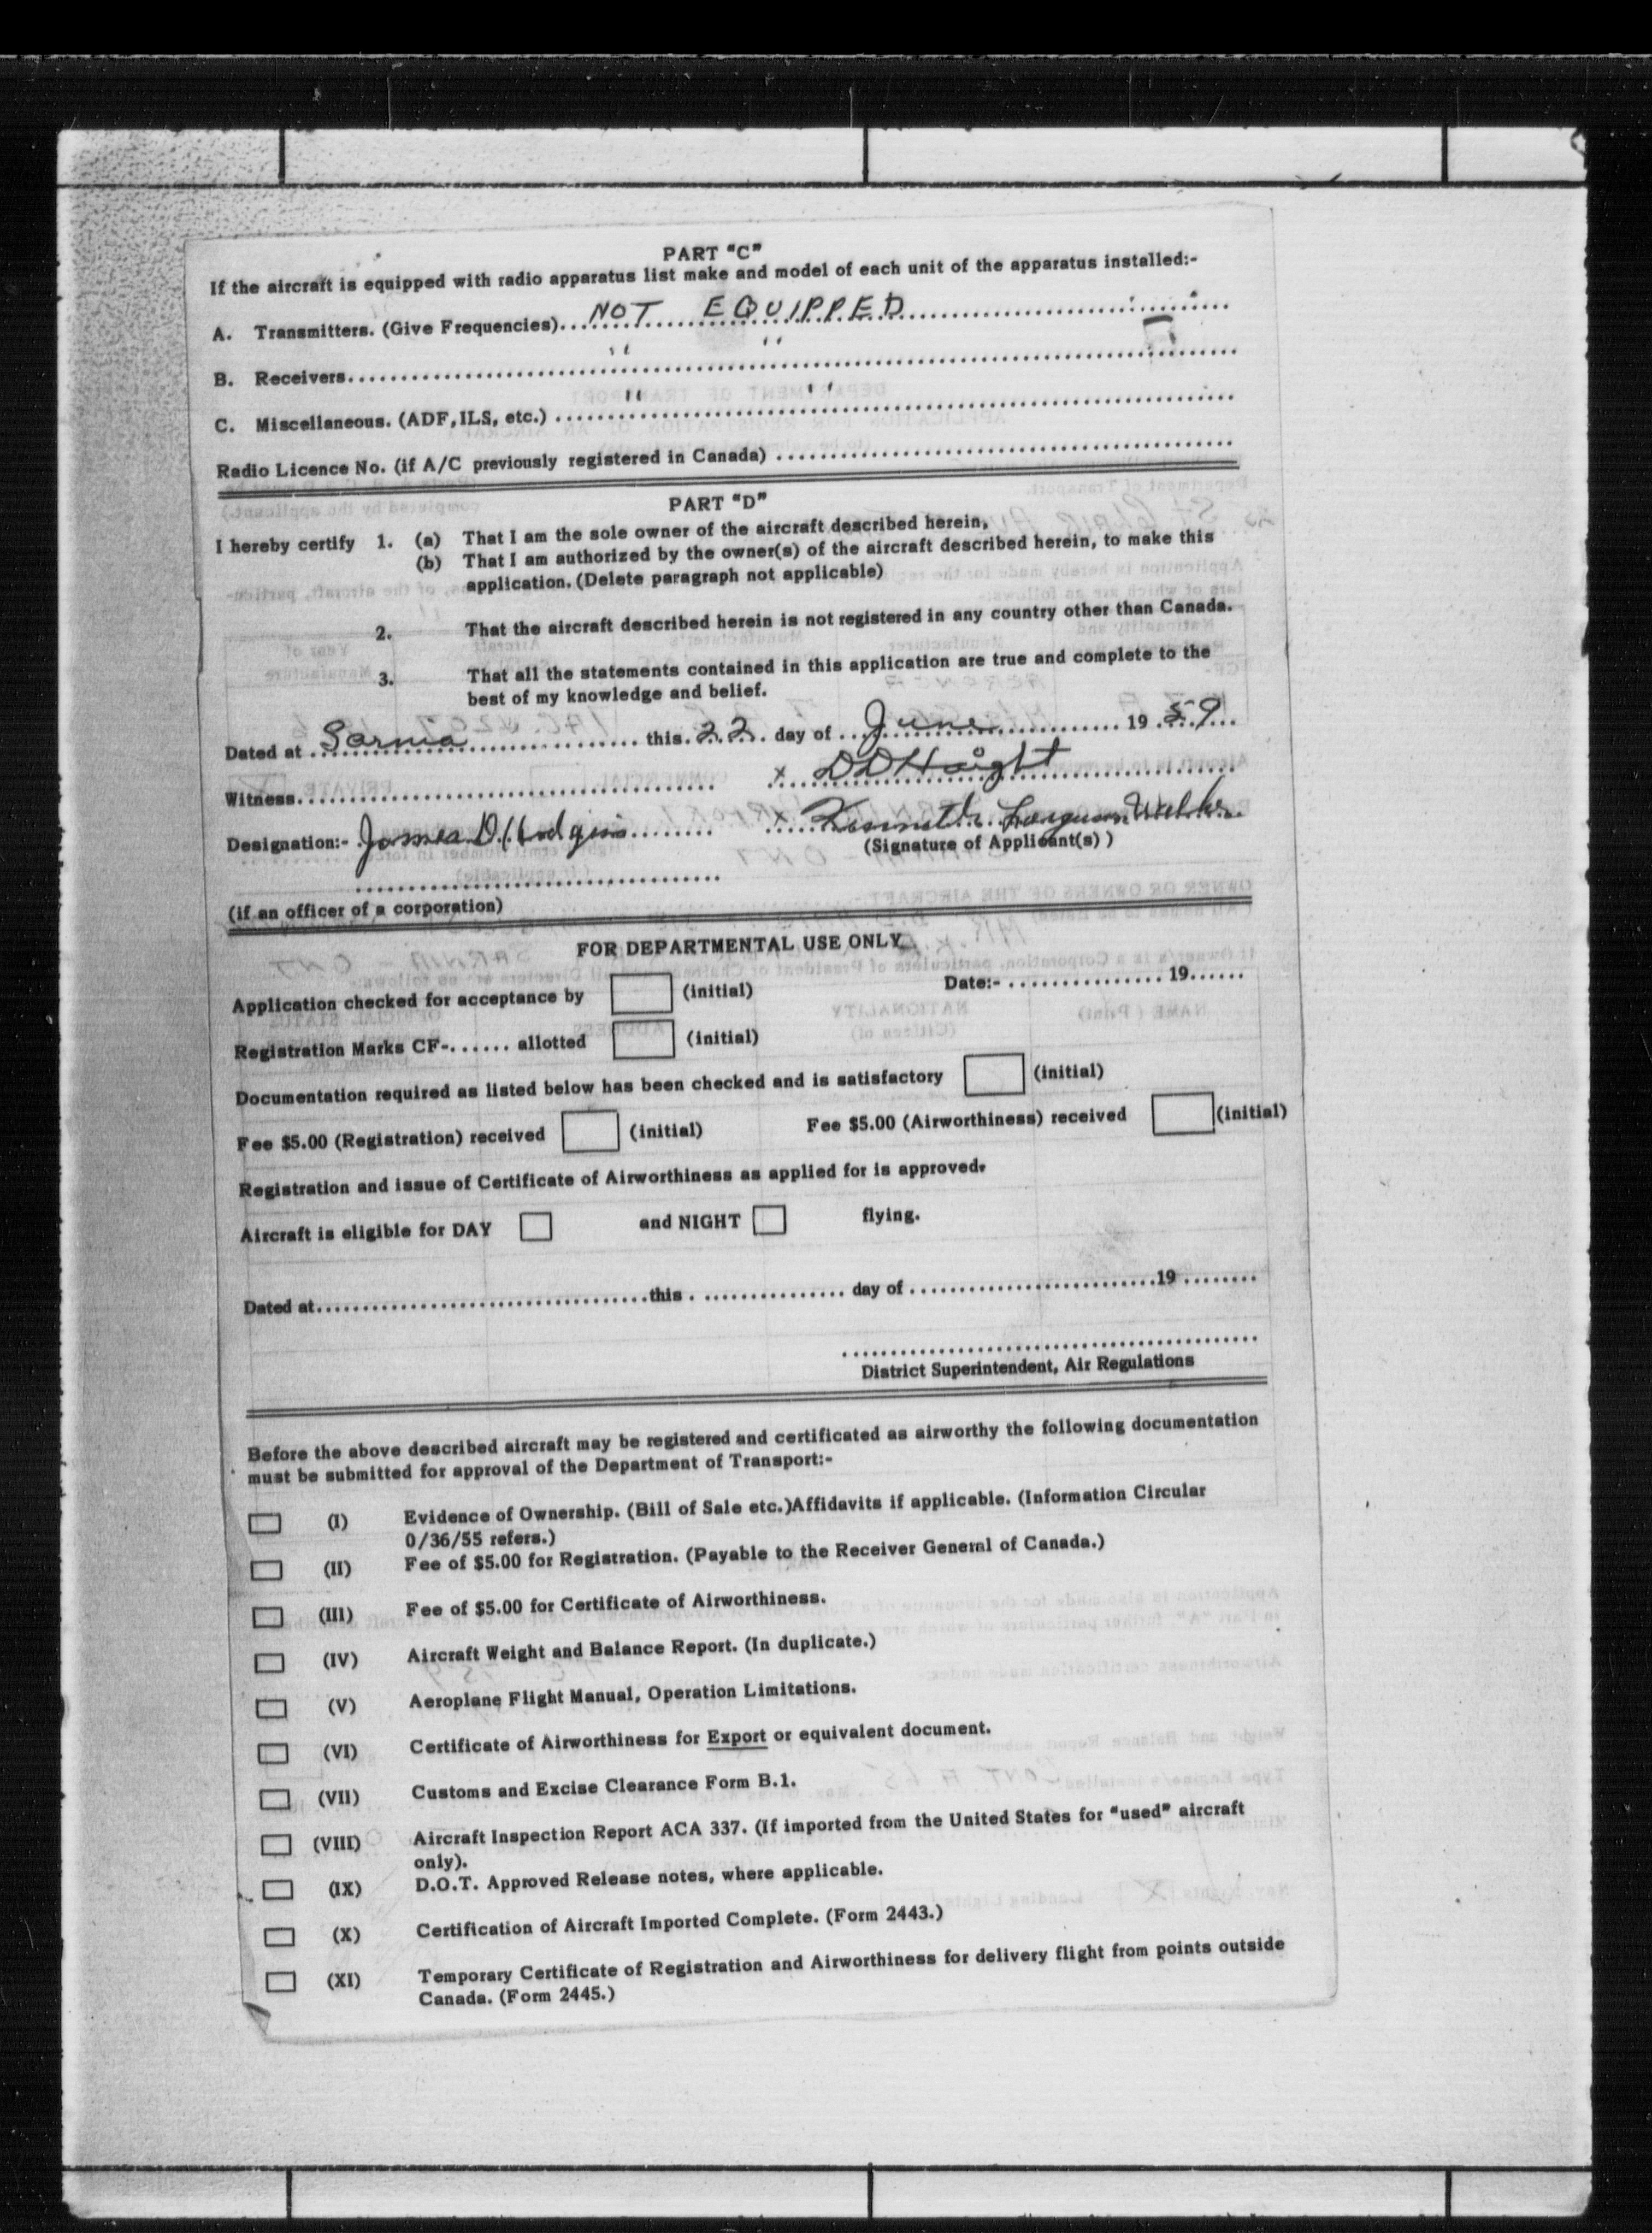 PART "C"
If the aircraft is equipped with radio apparatus list make and model of each unit of the apparatus installed:-
A. Transmitters. (Give Frequencies).... NOT EQUIPPED ....
B. Receivers.... " " ....
C. Miscellaneous. (ADF,ILS, etc.) .... " " ....
Radio Licence No. (if A/C previously registered in Canada) ....
PART "D"
I hereby certify 1. (a) That I am the sole owner of the aircraft described herein,
(b) That I am authorized by the owner(s) of the aircraft described herein, to make this
application. (Delete paragraph not applicable)
2. That the aircraft described herein is not registered in any country other than Canada.
3. That all the statements contained in this application are true and complete to the
best of my knowledge and belief.
Dated at .... Sarnia .... this. 22 . day of .... June .... 19 59
x DD Haight
Witness....
Designation:- James D. Hodgins .... x Kenneth Ferguson Walker
(Signature of Applicant(s) )
(if an officer of a corporation)
FOR DEPARTMENTAL USE ONLY
Application checked for acceptance by (initial) Date:- .... 19......
Registration Marks CF-...... allotted (initial)
Documentation required as listed below has been checked and is satisfactory (initial)
Fee $5.00 (Registration) received (initial) Fee $5.00 (Airworthiness) received (initial)
Registration and issue of Certificate of Airworthiness as applied for is approved.
Aircraft is eligible for DAY and NIGHT flying.
Dated at....this .... day of ....19 ....
District Superintendent, Air Regulations
Before the above described aircraft may be registered and certificated as airworthy the following documentation
must be submitted for approval of the Department of Transport:-
(I) Evidence of Ownership. (Bill of Sale etc.)Affidavits if applicable. (Information Circular
0/36/55 refers.)
(II) Fee of $5.00 for Registration. (Payable to the Receiver General of Canada.)
(III) Fee of $5.00 for Certificate of Airworthiness.
(IV) Aircraft Weight and Balance Report. (In duplicate.)
(V) Aeroplane Flight Manual, Operation Limitations.
(VI) Certificate of Airworthiness for Export or equivalent document.
(VII) Customs and Excise Clearance Form B.1.
(VIII) Aircraft Inspection Report ACA 337. (If imported from the United States for "used" aircraft
only).
(IX) D.O.T. Approved Release notes, where applicable.
(X) Certification of Aircraft Imported Complete. (Form 2443.)
(XI) Temporary Certificate of Registration and Airworthiness for delivery flight from points outside
Canada. (Form 2445.)